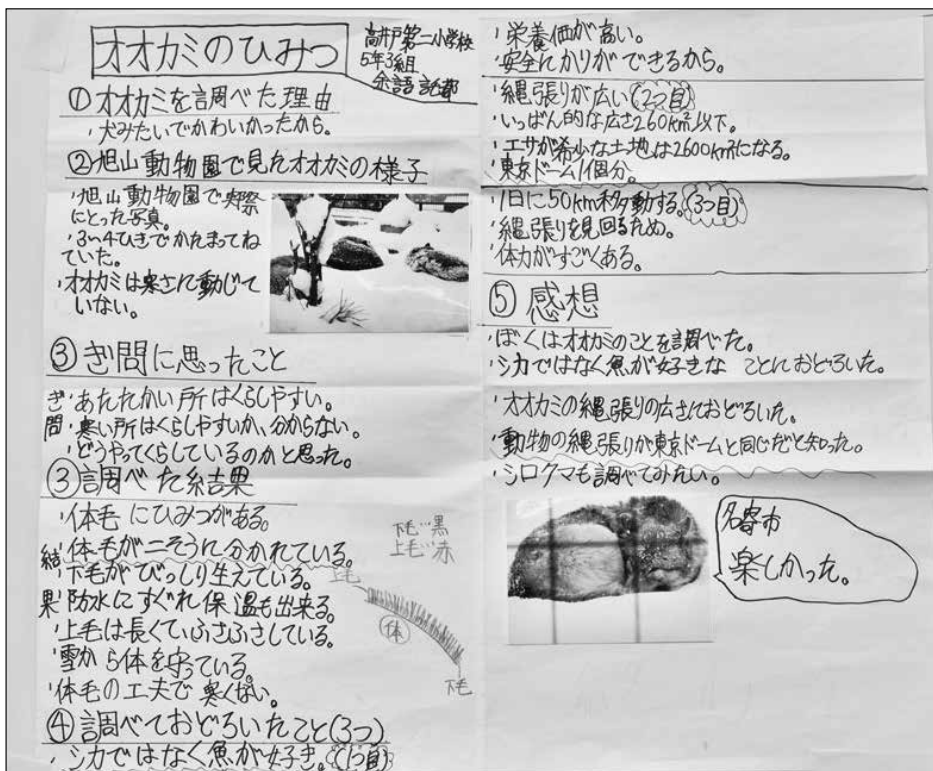 オオカミのひみつ
高井戸第二小学校
5年3組
余語 託都
①オオカミを調べた理由
・犬みたいでかわいかったから。
②旭山動物園で見たオオカミの様子
・旭山動物園で
にとった写真。
・3〜4ひきでかたまってね
ていた。
・オオカミは寒さに動じて
いない。
③ぎ問に思ったこと
ぎ問
・あたたかい所はくらしやすい。
・寒い所はくらしやすいか、分からない。
・どうやってくらしているのかと思った。
③調べた結果
結果
・体毛にひみつがある。
・体毛が二そうに分かれている。
・下毛がびっしり生えている。
・防水にすぐれ保温も出来る。
・上毛は長くてふさふさしている。
・雪から体を守っている。
・体毛の工夫で寒くない。
下毛…黒
上毛…赤
上毛
体
下毛
④調べておどろいたこと(3つ)
・シカではなく魚が好き。(1つ目)
・栄養価が高い。
・安全にかりができるから。
・縄張りが広い(2つ目)
・いっぱん的な広さ260km²以下。
・エサが希少な土地は2600km²になる。
・東京ドーム1個分。
・1日に50km移動する。(3つ目)
・縄張りを見回るため。
・体力がすごくある。
⑤感想
・ぼくはオオカミのことを調べた。
・シカではなく魚が好きな ことにおどろいた。
・オオカミの縄張りの広さにおどろいた。
・動物の縄張りが東京ドームと同じだと知った。
・シロクマも調べてみたい。
名寄市
楽しかった。